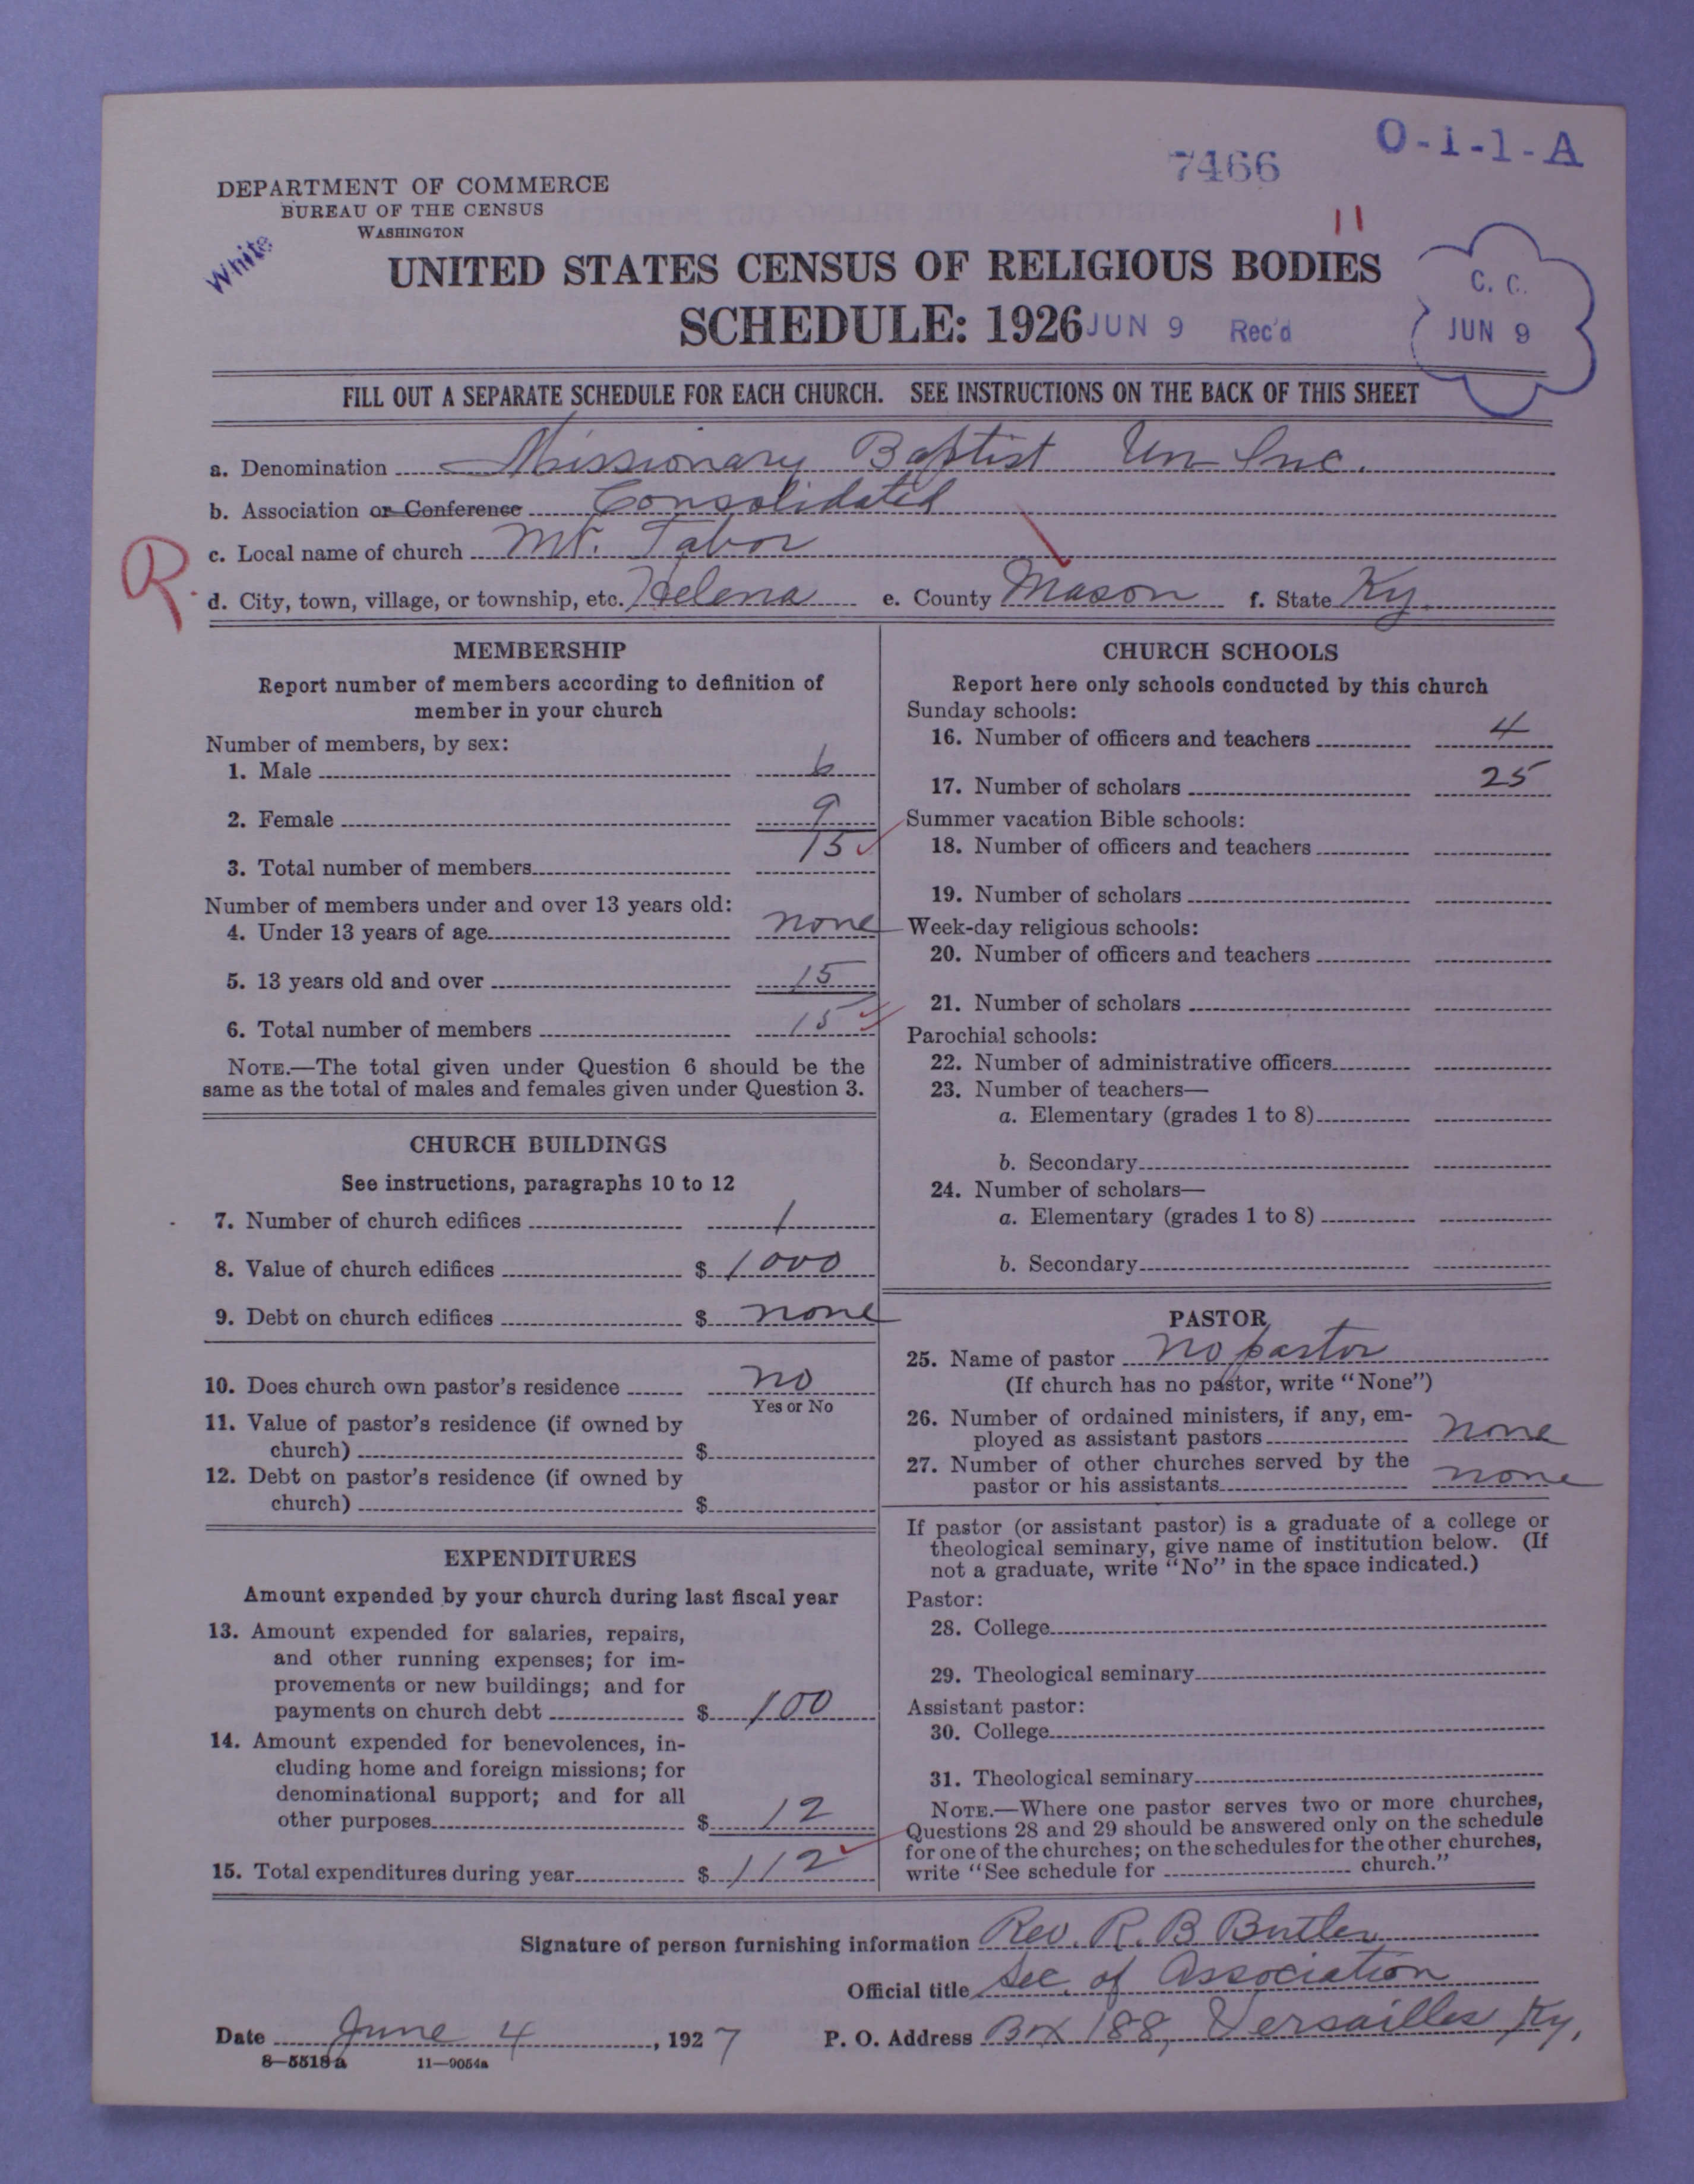 O-1-1-A
7466
DEPARTMENT OF COMMERCE
BUREAU OF THE CENSUS
WASHINGTON
White
11
UNITED STATES CENSUS OF RELIGIOUS BODIES
SCHEDULE: 1926 JUN 9 Rec'd
C. C.
JUN 9
FILL OUT A SEPARATE SCHEDULE FOR EACH CHURCH. SEE INSTRUCTIONS ON THE BACK OF THIS SHEET
a. Denomination Missionary Baptist Un Inc.
b. Association or Conference Consolidated
c. Local name of church Mt. Tabor
R.
d. City, town, village, or township, etc. Helena e. County Mason f. State Ky.
MEMBERSHIP
Report number of members according to definition of
member in your church
Number of members, by sex:
1. Male 6
2. Female 9
3. Total number of members 15
Number of members under and over 13 years old:
4. Under 13 years of age none
5. 13 years old and over 15
6. Total number of members 15
NOTE.—The total given under Question 6 should be the
same as the total of males and females given under Question 3.
CHURCH BUILDINGS
See instructions, paragraphs 10 to 12
7. Number of church edifices 1
8. Value of church edifices $ 1000
9. Debt on church edifices $ none
10. Does church own pastor's residence no
Yes or No
11. Value of pastor's residence (if owned by
church) $
12. Debt on pastor's residence (if owned by
church) $
EXPENDITURES
Amount expended by your church during last fiscal year
13. Amount expended for salaries, repairs,
and other running expenses; for im-
provements or new buildings; and for
payments on church debt $ 100
14. Amount expended for benevolences, in-
cluding home and foreign missions; for
denominational support; and for all
other purposes $ 12
15. Total expenditures during year $ 112
CHURCH SCHOOLS
Report here only schools conducted by this church
Sunday schools:
16. Number of officers and teachers 4
17. Number of scholars 25
Summer vacation Bible schools:
18. Number of officers and teachers
19. Number of scholars
Week-day religious schools:
20. Number of officers and teachers
21. Number of scholars
Parochial schools:
22. Number of administrative officers
23. Number of teachers—
a. Elementary (grades 1 to 8)
b. Secondary
24. Number of scholars—
a. Elementary (grades 1 to 8)
b. Secondary
PASTOR
25. Name of pastor no pastor
(If church has no pastor, write "None")
26. Number of ordained ministers, if any, em-
ployed as assistant pastors none
27. Number of other churches served by the
pastor or his assistants none
If pastor (or assistant pastor) is a graduate of a college or
theological seminary, give name of institution below. (If
not a graduate, write "No" in the space indicated.)
Pastor:
28. College
29. Theological seminary
Assistant pastor:
30. College
31. Theological seminary
NOTE.—Where one pastor serves two or more churches,
Questions 28 and 29 should be answered only on the schedule
for one of the churches; on the schedules for the other churches,
write "See schedule for church."
Signature of person furnishing information Rev. R. B Butler
Official title Sec. of Association
Date June 4, 1927 P. O. Address Box 188, Versailles Ky.
8-5518a 11-9054a